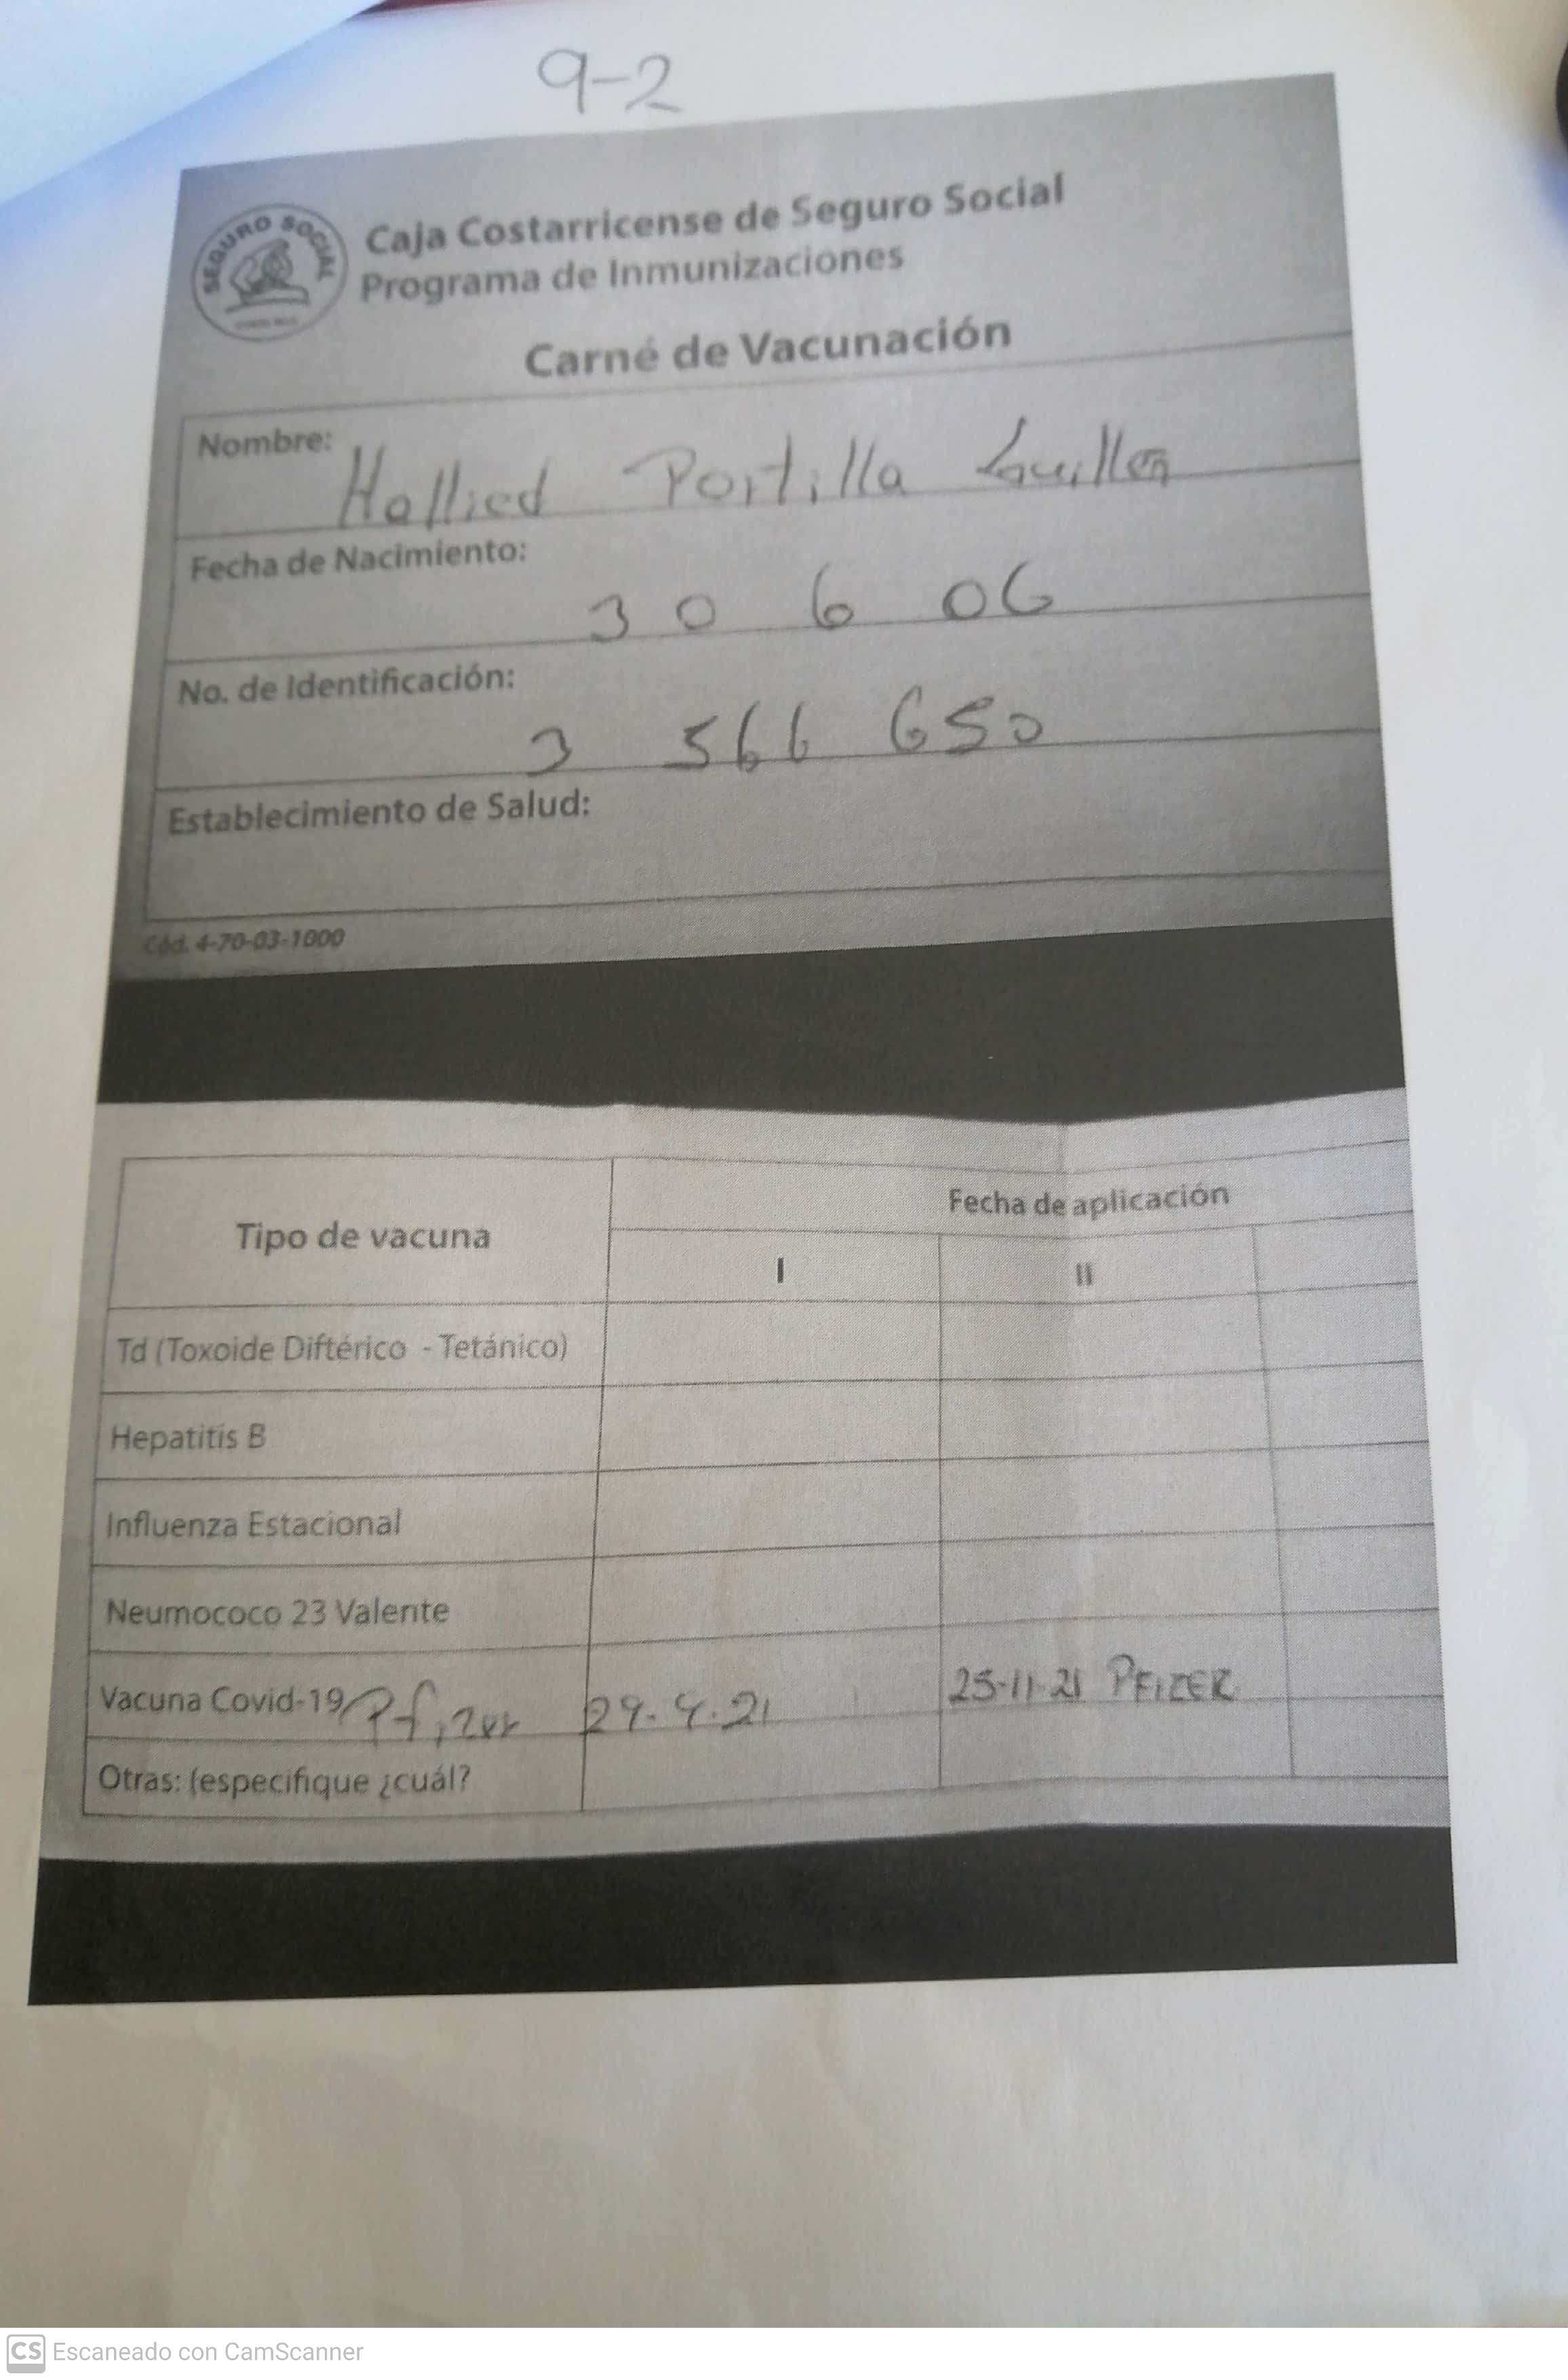 9-2
SEGURO SOCIAL
Caja Costarricense de Seguro Social
Programa de Inmunizaciones
Carné de Vacunación
Nombre: Hallied Portilla Guillen
Fecha de Nacimiento: 30 6 06
No. de Identificación: 3 566 650
Establecimiento de Salud:
Cód. 4-70-03-1000
Tipo de vacuna
Fecha de aplicación
I II
Td (Toxoide Diftérico - Tetánico)
Hepatitis B
Influenza Estacional
Neumococo 23 Valente
Vacuna Covid-19 Pfizer 29-9-21 25-11-21 PFIZER
Otras: (especifique ¿cuál?
CS Escaneado con CamScanner